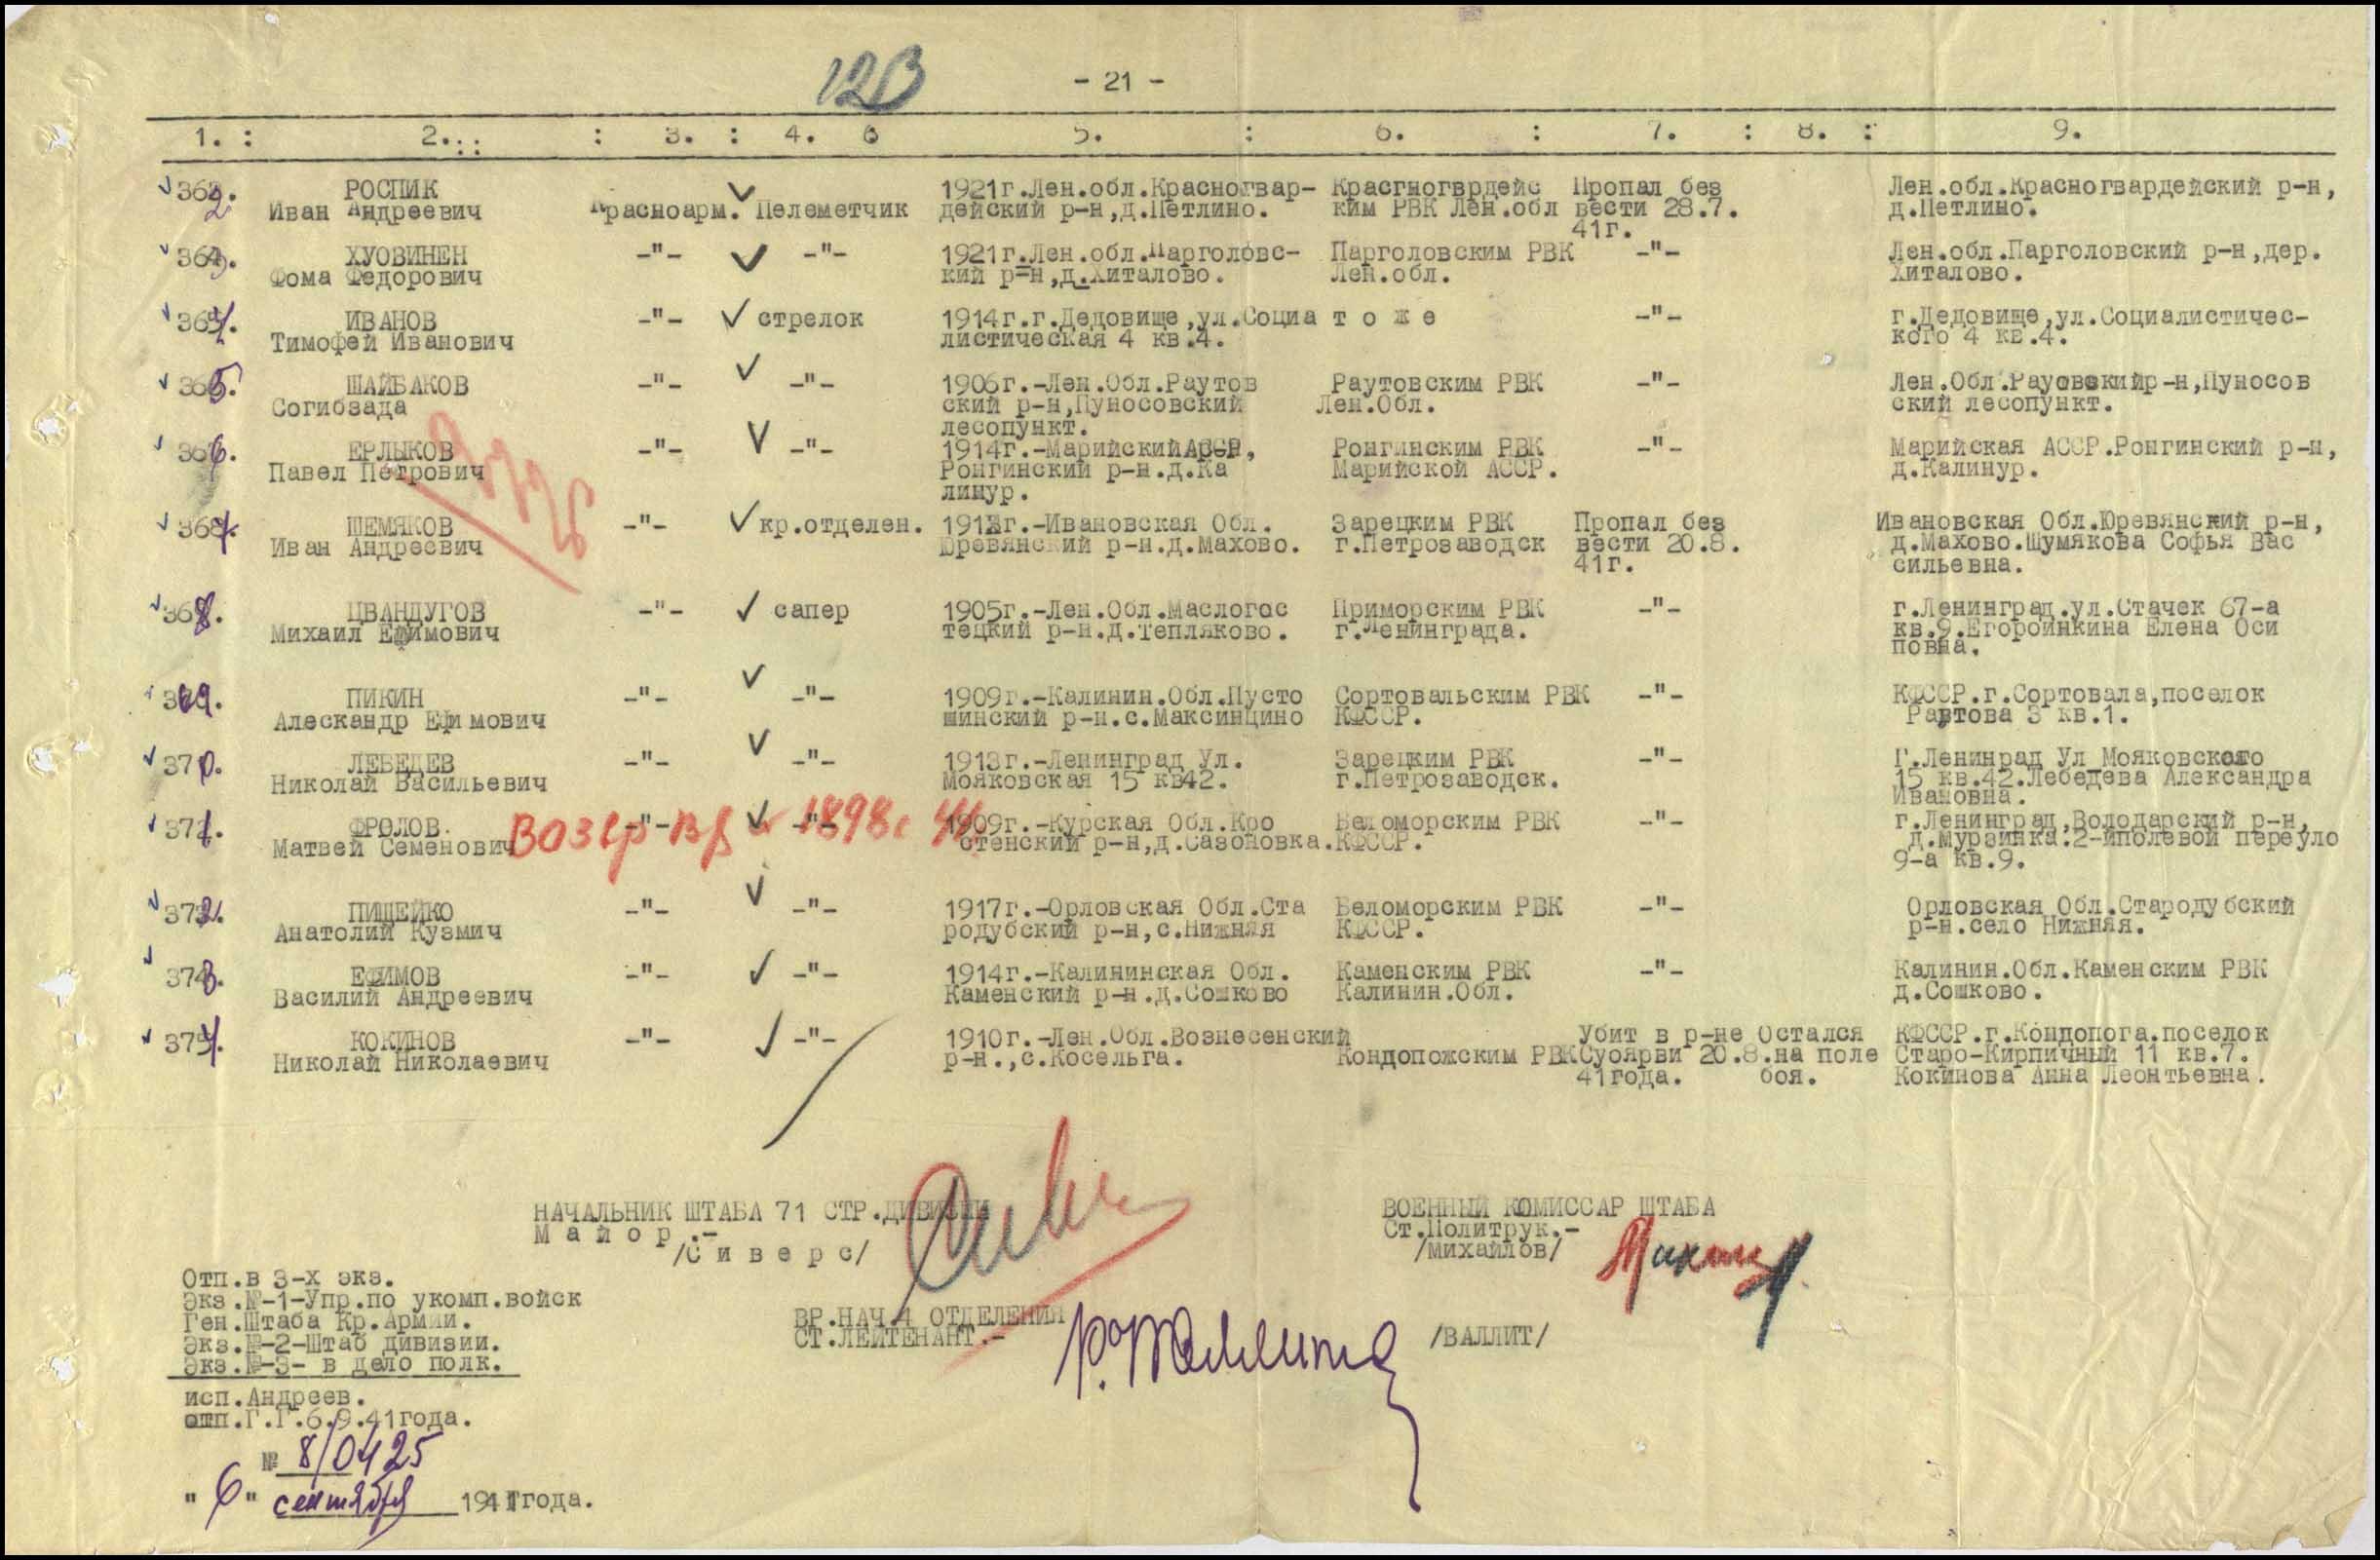 123
- 21 -
1. : 2... : 3. : 4. 6 5. : 6. : 7. : 8. : 9.
362. РОСПИК 1921г.Лен.обл.Красногвар- Красгногврдейс Пропал без Лен.обл.Красногвардейский р-н,
Иван Андреевич Красноарм. Пелеметчик дейский р-н,д.Петлино. ким РВК Лен.обл вести 28.7. д.Петлино.
41г.
363. ХУОВИНЕН -"- -"- 1921г.Лен.обл.Парголовс- Парголовским РВК -"- Лен.обл.Парголовский р-н,дер.
Фома Федорович кий р-н,д.Хиталово. Лен.обл. Хиталово.
364. ИВАНОВ -"- стрелок 1914г.г.Дедовище,ул.Социа т о ж е -"- г.Дедовище,ул.Социалистичес-
Тимофей Иванович листическая 4 кв.4. кого 4 кв.4.
365. ШАЙБАКОВ -"- -"- 1906г.-Лен.Обл.Раутов Раутовским РВК -"- Лен.Обл.Рауовскийр-н,Пуносов
Согибзада ский р-н,Пуносовский Лен.Обл. ский лесопункт.
лесопункт.
366. ЕРЛЫКОВ -"- -"- 1914г.-МарийскийАССР, Ронгинским РВК -"- Марийская АССР.Ронгинский р-н,
Павел Петрович Ронгинский р-н.д.Ка Марийской АССР. д.Калинур.
линур.
367. ШЕМЯКОВ -"- кр.отделен. 1913г.-Ивановская Обл. Зарецким РВК Пропал без Ивановская Обл.Юревянский р-н,
Иван Андреевич Юревянский р-н.д.Махово. г.Петрозаводск вести 20.8. д.Махово.Шумякова Софья Вас
41г. сильевна.
368. ЦВАНДУГОВ -"- сапер 1905г.-Лен.Обл.Маслогос Приморским РВК -"- г.Ленинград.ул.Стачек 67-а
Михаил Ефимович тецкий р-н.д.Тепляково. г.Ленинграда. кв.9.Егороинкина Елена Оси
повна.
369. ПИКИН -"- -"- 1909г.-Калинин.Обл.Пусто Сортовальским РВК -"- КФССР.г.Сортовала,поселок
Алескандр Ефимович шинский р-н.с.Максинцино КФССР. Раутова 3 кв.1.
370. ЛЕБЕДЕВ -"- -"- 1913г.-Ленинград Ул. Зарецким РВК -"- Г.Ленинрад Ул Мояковского
Николай Васильевич Мояковская 15 кв42. г.Петрозаводск. 15 кв.42.Лебедева Александра
Ивановна.
371. ФРОЛОВ. -"- -"- 1909г.-Курская Обл.Кро Беломорским РВК -"- г.Ленинград,Володарский р-н,
Матвей Семенович стенский р-н,д.Сазоновка. КФССР. д.Мурзинка.2-йполевой переуло
9-а кв.9.
372. ПИЩЕЙКО -"- -"- 1917г.-Орловская Обл.Ста Беломорским РВК -"- Орловская Обл.Стародубский
Анатолий Кузмич родубский р-н,с.Нижняя КФССР. р-н.село Нижняя.
373. ЕФИМОВ -"- -"- 1914г.-Калининская Обл. Каменским РВК -"- Калинин.Обл.Каменским РВК
Василий Андреевич Каменский р-н.д.Сошково Калинин.Обл. д.Сошково.
374. КОКИНОВ -"- -"- 1910г.-Лен.Обл.Вознесенский Убит в р-не Остался КФССР.г.Кондопога.поселок
Николай Николаевич р-н.,с.Косельга. Кондопожским РВК Суоярви 20.8. на поле Старо-Кирпичный 11 кв.7.
41года. боя. Кокинова Анна Леонтьевна.
НАЧАЛЬНИК ШТАБА 71 СТР.ДИВИЗИИ ВОЕННЫЙ КОМИССАР ШТАБА
М а й о р .- Ст.Политрук.-
/С и в е р с/ /Михайлов/
Отп.в 3-х экз.
Экз.№-1-Упр.по укомп.войск
Ген.Штаба Кр.Армии. ВР.НАЧ.4 ОТДЕЛЕНИЯ
Экз.№-2-Штаб дивизии. СТ.ЛЕЙТЕНАНТ.- /ВАЛЛИТ/
Экз.№-3- в дело полк.
исп.Андреев.
отп.Г.Г.6.9.41года.
№ 8/0425
" 6 " сентября 1941года.